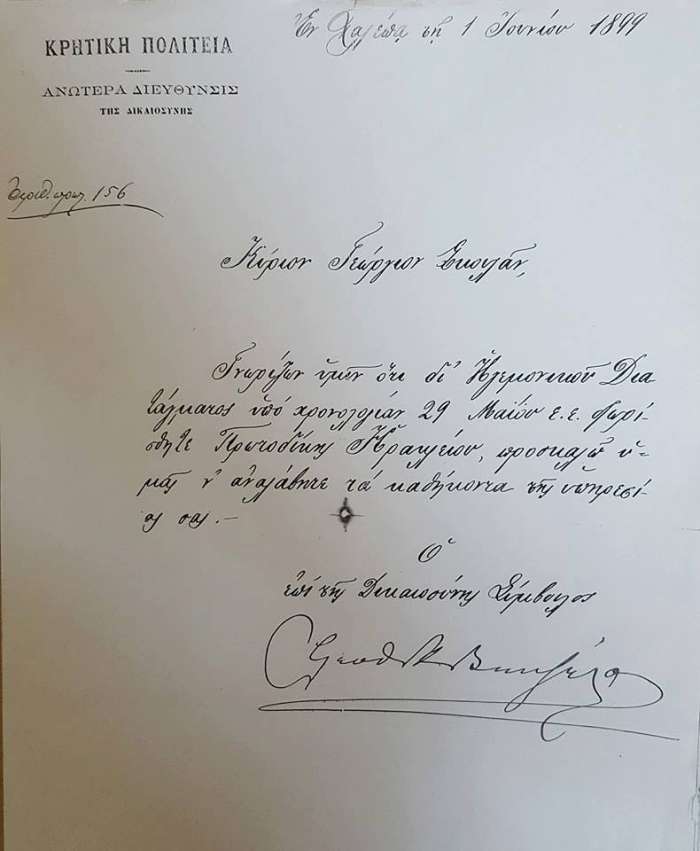 ΚΡΗΤΙΚΗ ΠΟΛΙΤΕΙΑ
ΑΝΩΤΕΡΑ ΔΙΕΥΘΥΝΣΙΣ
ΤΗΣ ΔΙΚΑΙΟΣΥΝΗΣ
Ἐν Χαλέπᾳ τῇ 1 Ἰουνίου 1899
156
Κύριον Γεώργιον
Γνωρίζων ὑμῖν ὅτι δι' Ἡγεμονικοῦ Δια
τάγματος ὑπό χρονολογίαν 29 Μαΐου ἐ.ἔ. διωρί
σθητε Πρωτοδίκης Ἡρακλείου, προσκαλῶ ὑ-
μᾶς ν' ἀναλάβητε τά καθήκοντα τῆς ὑπηρεσί
ας σας.-
Ὁ
ἐπί τῆς Δικαιοσύνης Σύμβουλος